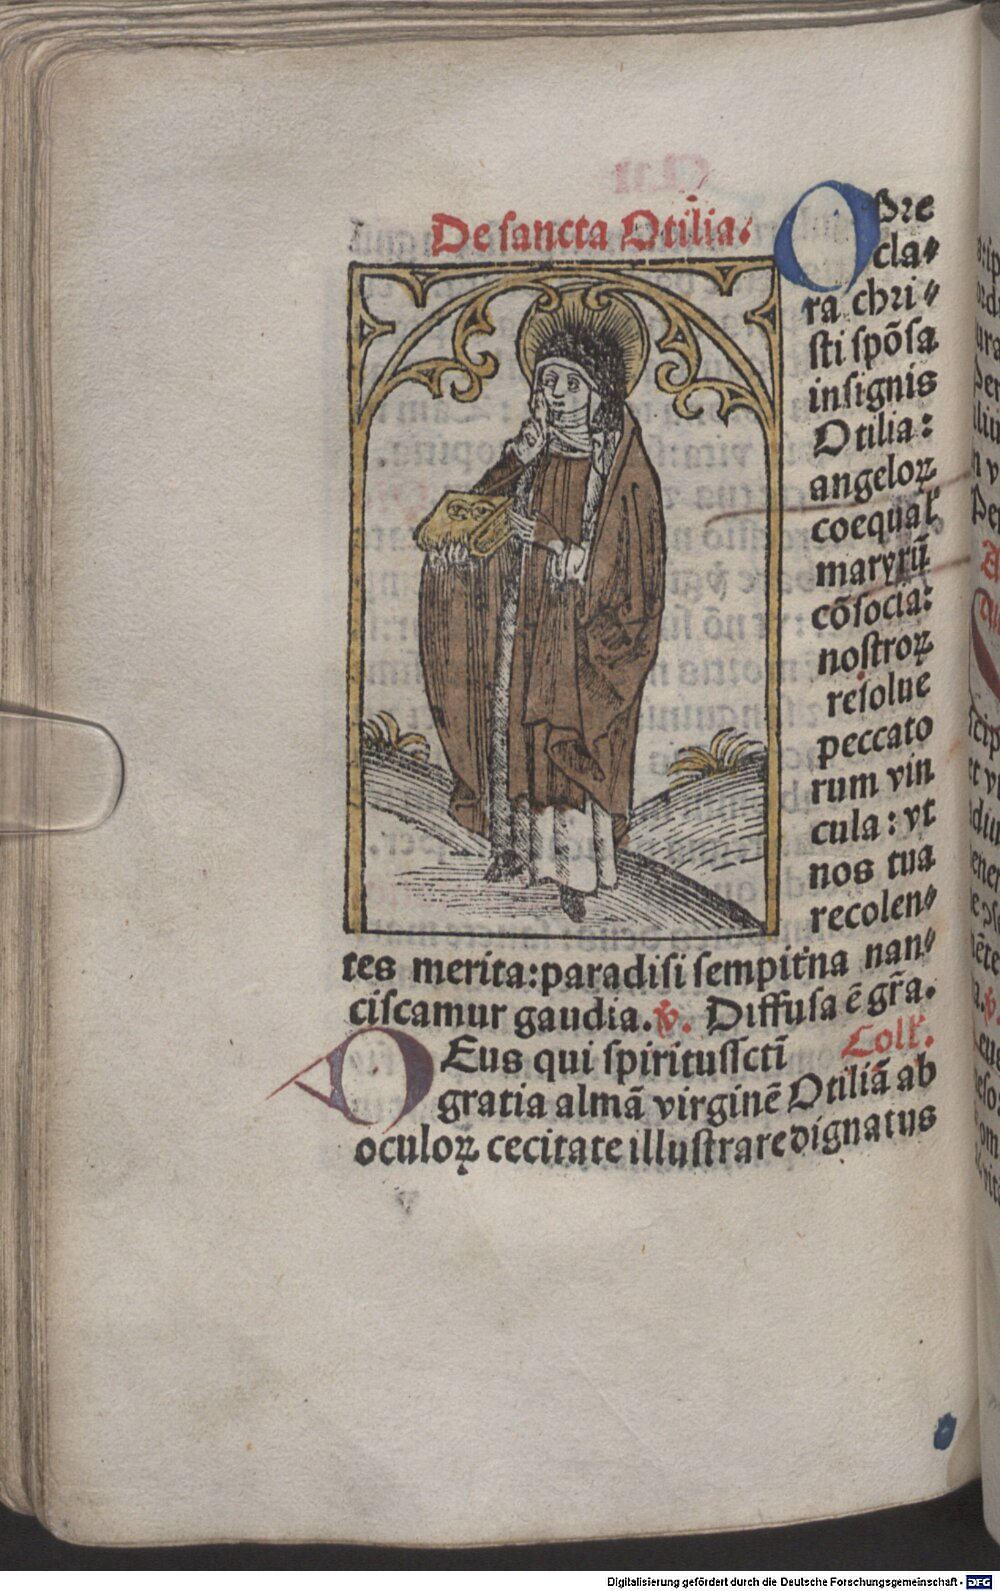 De sancta Otilia.
O Pre
cla⸗
ra chri⸗
sti spōsa
insignis
Otilia:
angeloꝝ
coequal'
martyrū
cōsocia:
nostroꝝ
resolue
peccato
rum vin
cula: vt
nos tua
recolen⸗
tes merita: paradisi sempit'na nan⸗
ciscamur gaudia. ℣. Diffusa ē gr̄a.
DEus qui spiritussctī Coll'.
gratia almā virginē Otiliā ab
oculoꝝ cecitate illustrare dignatus
Digitalisierung gefördert durch die Deutsche Forschungsgemeinschaft - DFG